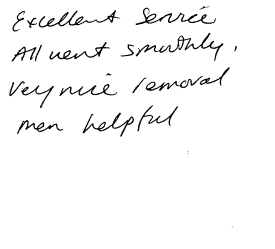 Excellent Service
All went smoothly.
Very nice removal
men helpful